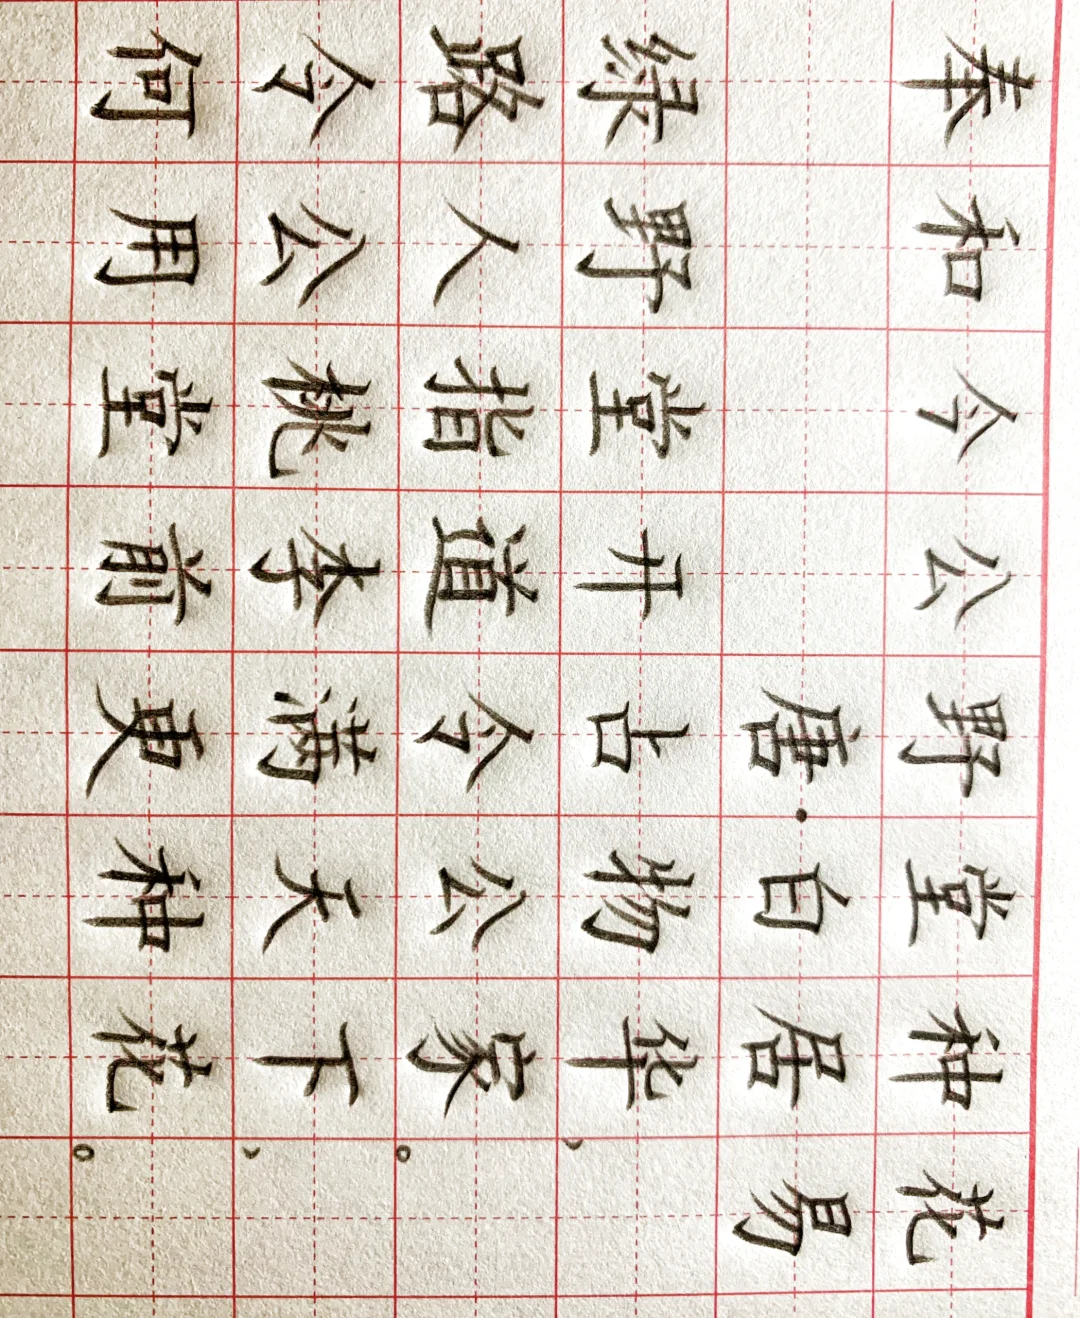 奉和令公野堂种花
唐·白居易
绿野堂开占物华，
路人指道令公家。
令公桃李满天下，
何用堂前更种花。